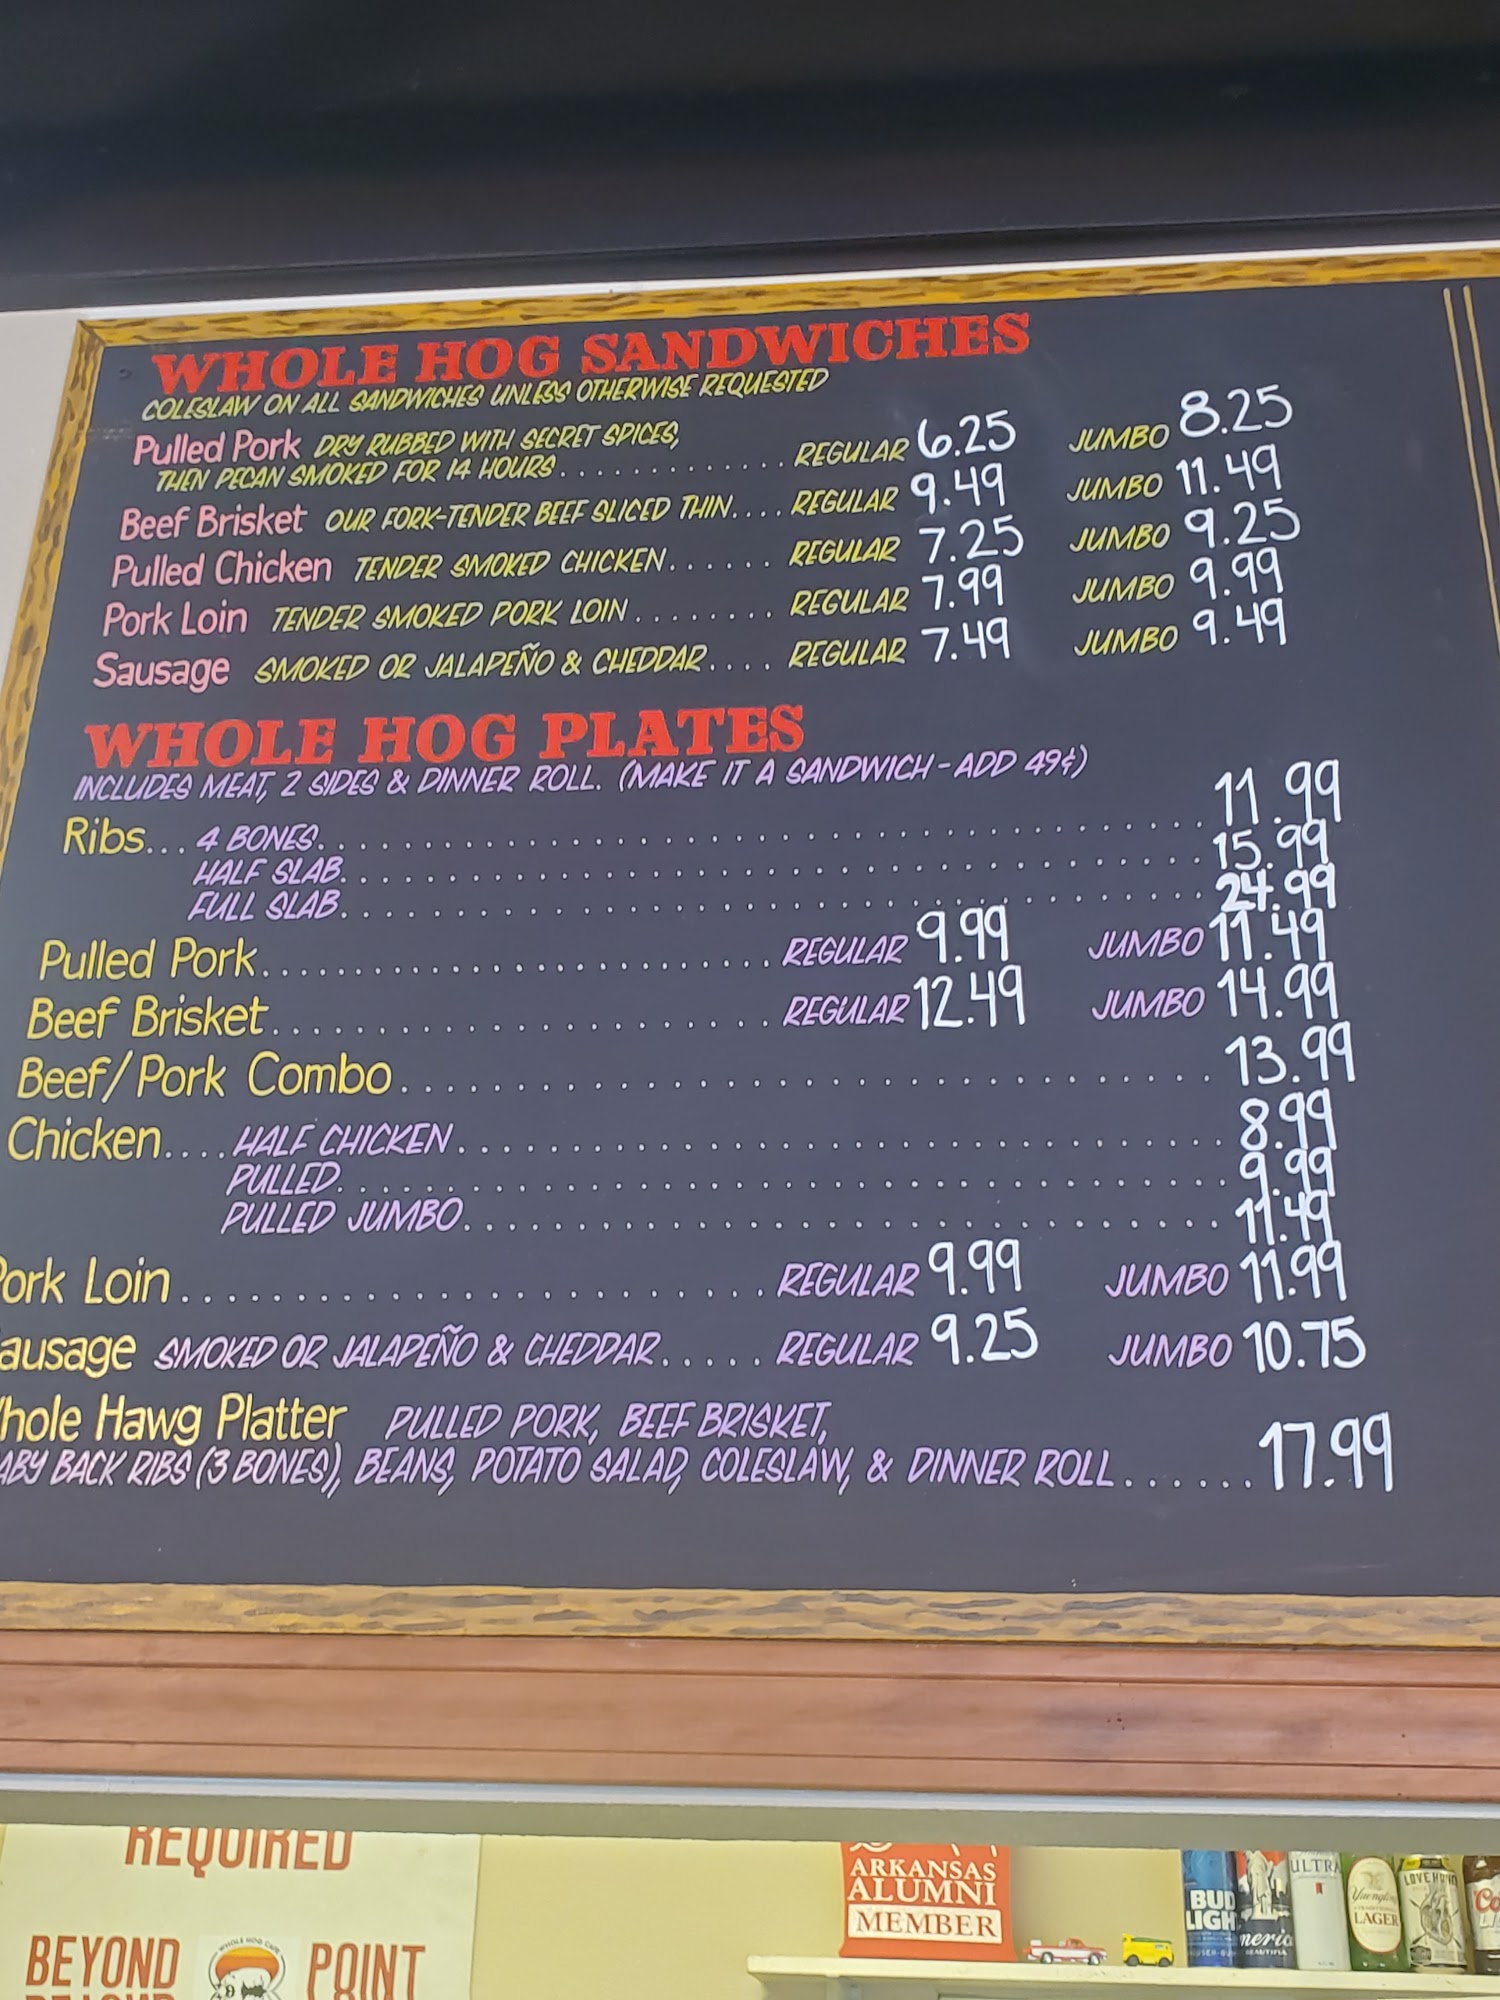 WHOLE HOG SANDWICHES
COLESLAW ON ALL SANDWICHES UNLESS OTHERWISE REQUESTED
Pulled Pork DRY RUBBED WITH SECRET SPICES,
THEN PECAN SMOKED FOR 14 HOURS............. REGULAR 6.25 JUMBO 8.25
Beef Brisket OUR FORK-TENDER BEEF SLICED THIN.... REGULAR 9.49 JUMBO 11.49
Pulled Chicken TENDER SMOKED CHICKEN...... REGULAR 7.25 JUMBO 9.25
Pork Loin TENDER SMOKED PORK LOIN........ REGULAR 7.99 JUMBO 9.99
Sausage SMOKED OR JALAPEÑO & CHEDDAR.... REGULAR 7.49 JUMBO 9.49
WHOLE HOG PLATES
INCLUDES MEAT, 2 SIDES & DINNER ROLL. (MAKE IT A SANDWICH - ADD 49¢)
Ribs... 4 BONES........................................ 11.99
HALF SLAB........................................ 15.99
FULL SLAB........................................ 24.99
Pulled Pork........................ REGULAR 9.99 JUMBO 11.49
Beef Brisket....................... REGULAR 12.49 JUMBO 14.99
Beef/Pork Combo.................................... 13.99
Chicken.... HALF CHICKEN................................... 8.99
PULLED........................................ 9.99
PULLED JUMBO................................... 11.49
ork Loin............................ REGULAR 9.99 JUMBO 11.99
ausage SMOKED OR JALAPEÑO & CHEDDAR..... REGULAR 9.25 JUMBO 10.75
hole Hawg Platter PULLED PORK, BEEF BRISKET,
ABY BACK RIBS (3 BONES), BEANS, POTATO SALAD, COLESLAW, & DINNER ROLL...... 17.99
REQUIRED
BEYOND POINT
WHOLE HOG CAFE
ARKANSAS
ALUMNI
MEMBER
BUD
LIGH
ULTRA
Yuengling
LAGER